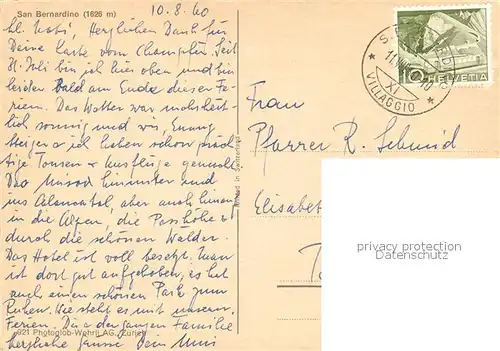 San Bernardino (1626 m)
10.8.60
Herzlichen Dank für
Deine Karte vom Champfèr. Seit
31. Juli bin ich hier oben und bin
leider bald am Ende dieser Fe-
rien. Das Wetter war
sonnig und wir,
und ich haben schon präch-
tige Touren & Ausflüge gemacht.
Das hinunter und
ins Calancatal, aber auch hinauf
in die Alpen, die Passhöhe &
durch die schönen Wälder.
Das Hotel ist voll besetzt. Man
ist dort gut aufgehoben, es hat
auch einen schönen Park zum
Ruhen. Wie steht es mit unseren
Ferien. Dir & der ganzen Familie
herzliche Grüsse Dein
921 Photoglob-Wehrli AG, Zürich
HELVETIA
10
VILLAGGIO
XI
Frau
Pfarrer R. Schmid
Elisabet
privacy protection
Datenschutz